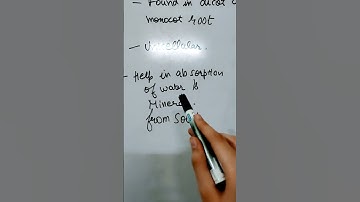 - Found in dicot &
monocot root
- Unicellular.
- Help in absorption
of water &
Mineral
from Soil